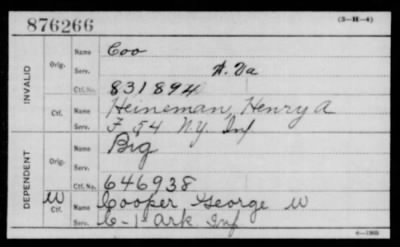 876266 (3-H-4)
INVALID
Orig. Name Coo
Serv. W. Va
Ctf. No. 831894
Ctf. Name Heineman, Henry A
Serv. F 54 N.Y. Inf
DEPENDENT
Orig. Name Big
Serv.
Ctf. No. 646938
W Ctf. Name Cooper, George W
Serv. C-1-Ark Inf